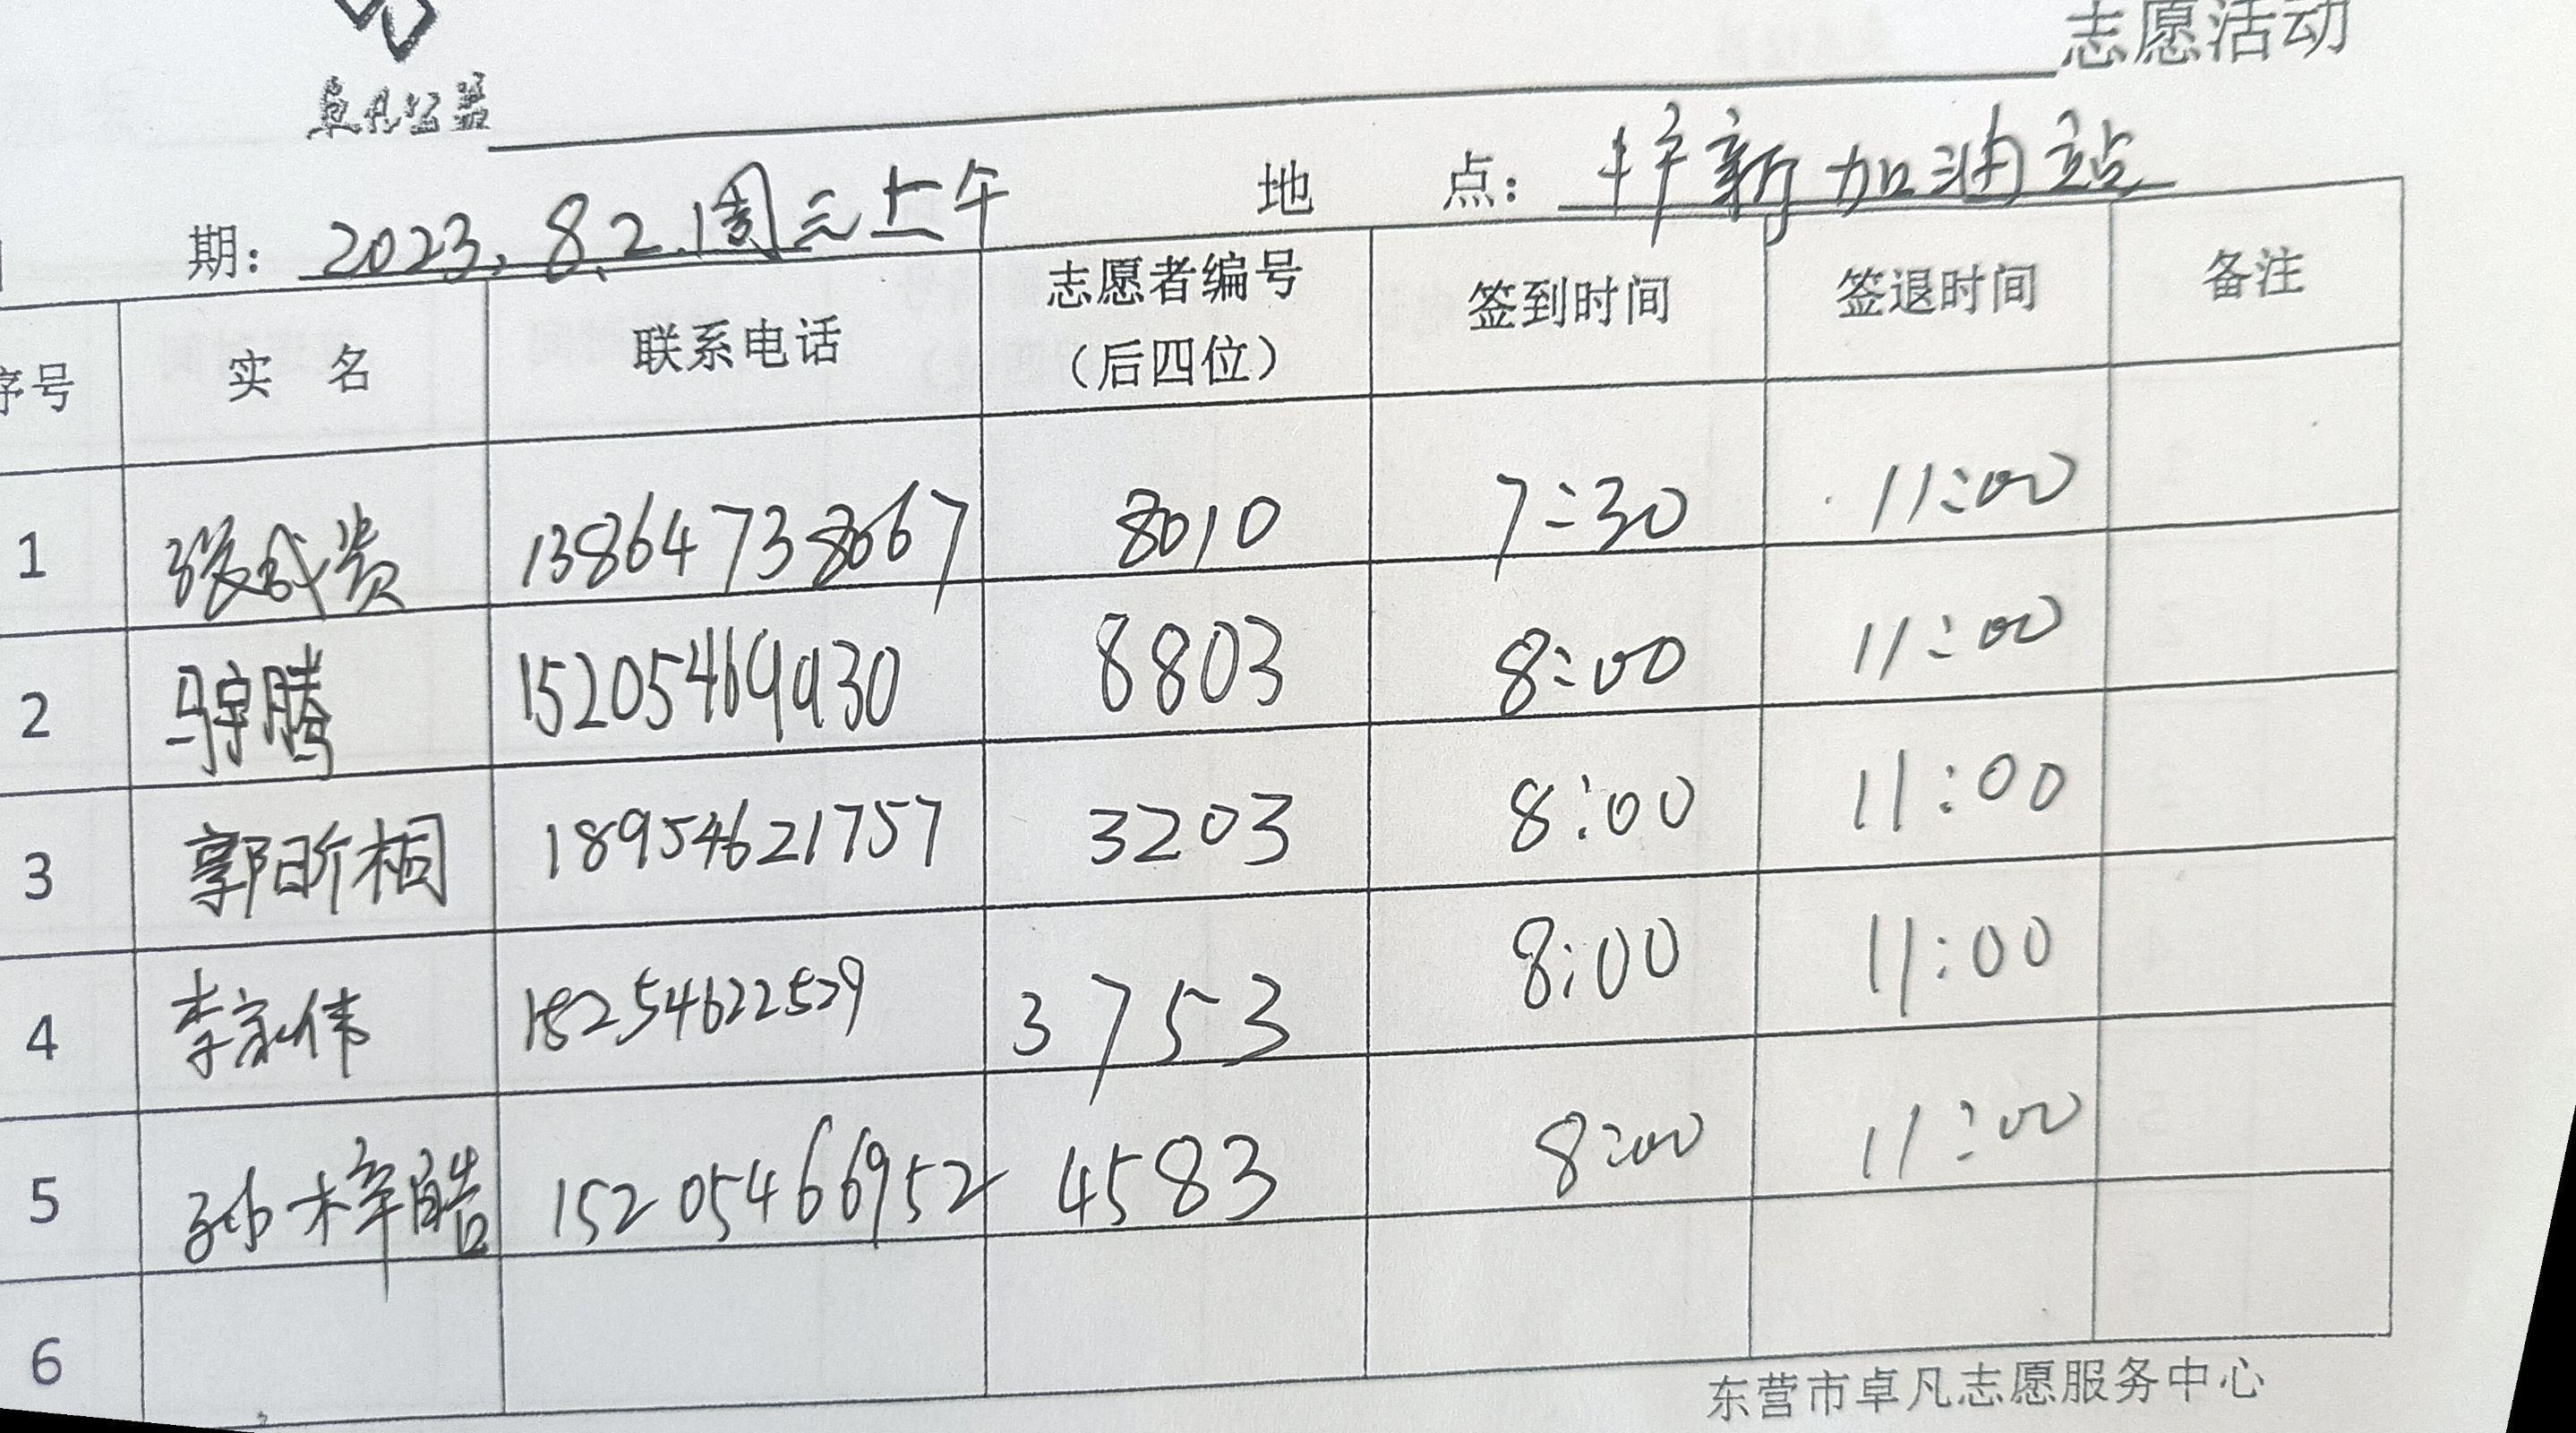 志愿活动
卓凡公益
期： 2023.8.2.周三上午 地 点： 梓新加油站
序号 实 名 联系电话 志愿者编号（后四位） 签到时间 签退时间 备注
1 张成贵 13864738667 8010 7:30 11:00
2 马宇腾 15205469930 8803 8:00 11:00
3 郭昕桐 18954621757 3203 8:00 11:00
4 李家伟 15254622529 3753 8:00 11:00
5 孙梓皓 15205466952 4583 8:00 11:00
6
东营市卓凡志愿服务中心